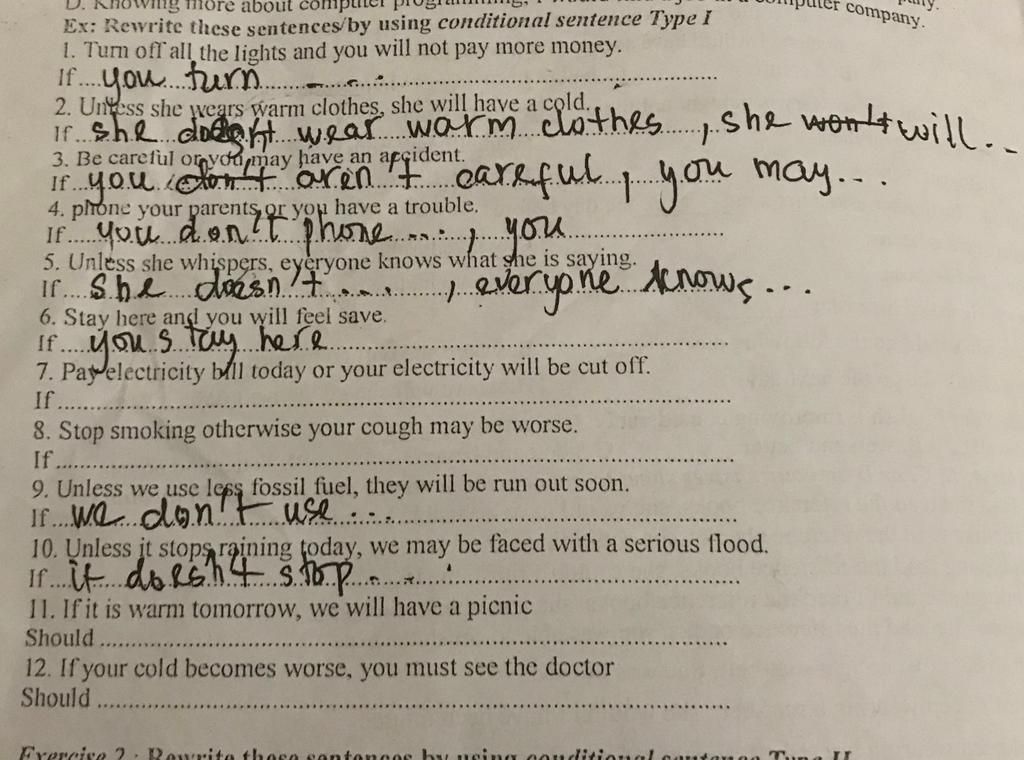 D. Knowing more about computer programming, I would computer company.
Ex: Rewrite these sentences by using conditional sentence Type I
1. Turn off all the lights and you will not pay more money.
If....you turn - - . ............
2. Unless she wears warm clothes, she will have a cold.
If she doesn't wear warm clothes, she will...
3. Be careful or you may have an accident.
If you aren't careful, you may...
4. phone your parents or you have a trouble.
If.....you don't phone ...., you..................
5. Unless she whispers, everyone knows what she is saying.
If....she doesn't......, everyone knows...
6. Stay here and you will feel save.
If.....you stay here..................
7. Pay electricity bill today or your electricity will be cut off.
If..................
8. Stop smoking otherwise your cough may be worse.
If..................
9. Unless we use less fossil fuel, they will be run out soon.
If...we don't use ...............
10. Unless it stops raining today, we may be faced with a serious flood.
If...it doesn't stop ...............
11. If it is warm tomorrow, we will have a picnic
Should ..................
12. If your cold becomes worse, you must see the doctor
Should ..................
Exercise 2 : Rewrite these sentences by using conditional sentence Type II